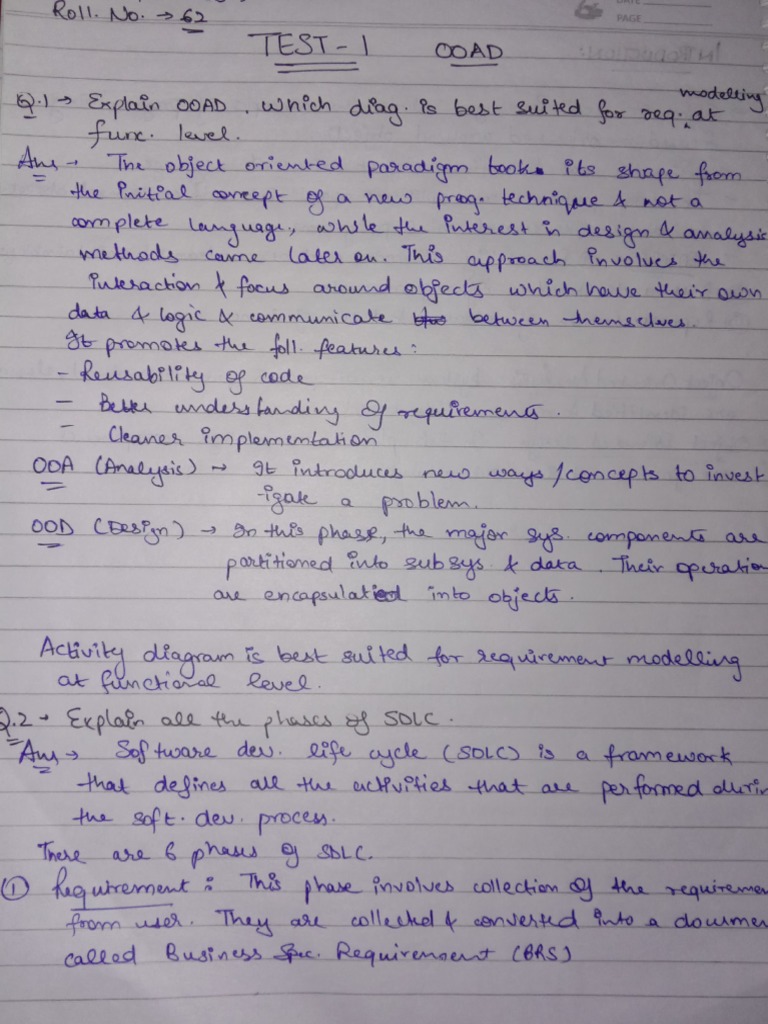 Roll. No. → 62
PAGE
TEST-1 OOAD
Q.1 → Explain OOAD. Which diag. is best suited for req. modelling at
func. level.
Ans → The object oriented paradigm took its shape from
the initial concept of a new prog. technique & not a
complete language, while the interest in design & analysis
methods came later on. This approach involves the
interaction & focus around objects which have their own
data & logic & communicate between themselves.
It promotes the foll. features:
- Reusability of code
- Better understanding of requirements.
- Cleaner implementation
OOA (Analysis) → It introduces new ways/concepts to invest
-igate a problem.
OOD (Design) → In this phase, the major sys. components are
partitioned into subsys & data. Their operation
are encapsulated into objects.
Activity diagram is best suited for requirement modelling
at functional level.
Q.2 → Explain all the phases of SDLC.
Ans → Software dev. life cycle (SDLC) is a framework
that defines all the activities that are performed durin
the soft. dev. process.
There are 6 phases of SDLC.
① Requirement : This phase involves collection of the requiremen
from user. They are collected & converted into a documen
called Business Spec. Requirement (BRS)